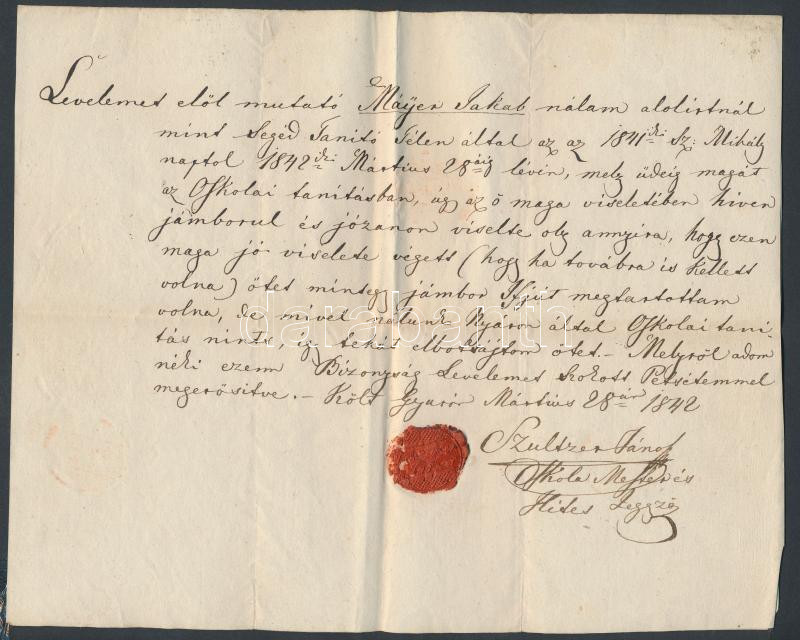 Levelemet elől mutató Májer Jakab nálam alolirtnál
mint Segéd Tanitó Télen által az az 1841iki Sz: Mihály
naptol 1842iki Mártius 28áig lévén, mely üdeig magát
az Oskolai tanitásban, úg az ő maga viseletében hiven
jámborul és józanon viselte oly annyira, hogy ezen
maga jó viselete végett (hogy ha továbra is Kellett
volna) őtet mintegy jámbor Ifjút megtartottam
volna, de mivel nálunk Nyáron által Oskolai tani-
tás nints, ig tehát elbotsájtom őtet. – Melyről adom
néki ezenn Bizonyság Levelemet szokott Petsétemmel
megerősitve. – Költ Gyarór Mártius 28án 1842
Szultzer János
Oskola Mester és
Hites Jeggző
darabanth